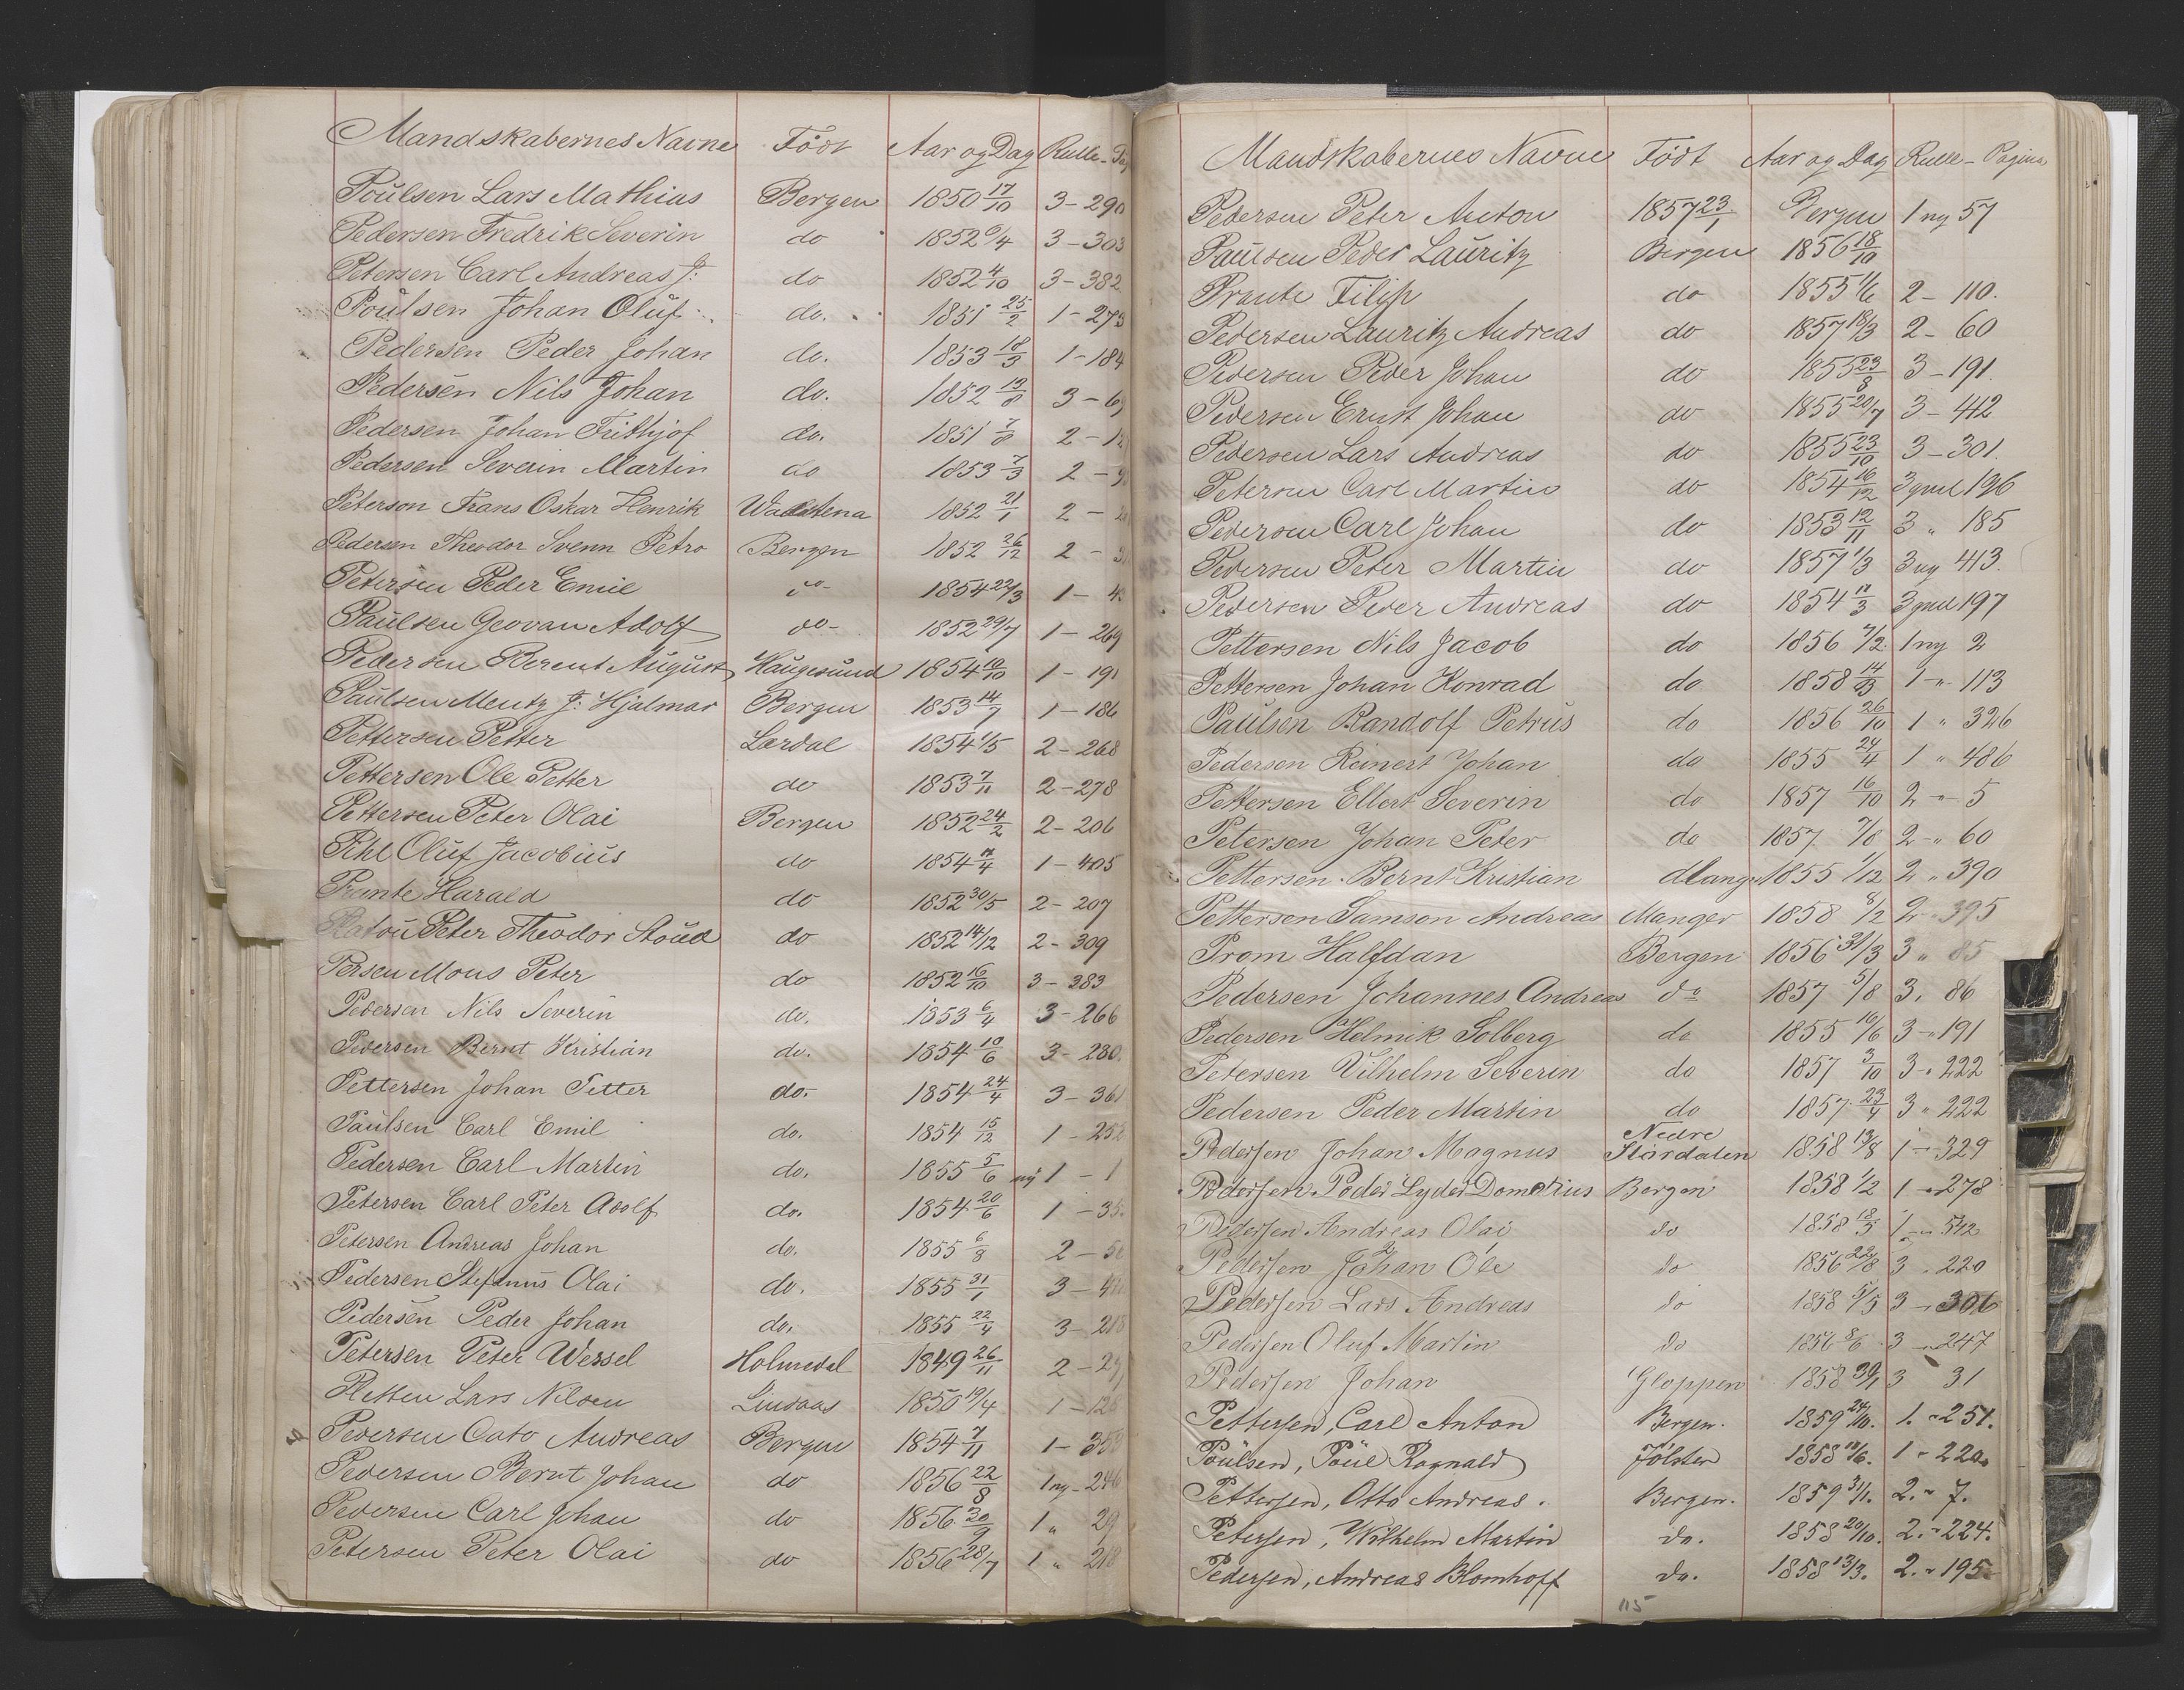 Mandskabernes Navne Født Aar og Dag Rulle - Pag
Poulsen Lars Mathias Bergen 1850 17/10 3 - 290
Pedersen Fredrik Severin do 1852 9/4 3 - 303
Petersen Carl Andreas J: do 1852 4/10 3 - 382
Poulsen Johan Oluf do. 1851 25/2 1 - 273
Pedersen Peder Johan do. 1853 18/3 1 - 184
Pedersen Nils Johan do. 1852 13/8 3 - 69
Pedersen Johan Frithjof do. 1851 7/8 2 -
Pedersen Severin Martin do 1853 7/3 2 -
Peterson Frans Oskar Henrik Wadstena 1852 21/1 2 -
Pedersen Theodor Svenn Petro Bergen 1852 26/12 2 -
Petersen Peder Emil do 1854 22/3 1 -
Paulsen Geovan Adolf do 1852 29/7 1 - 269
Pedersen Berent August Haugesund 1854 10/10 1 - 191
Paulsen Mentz J: Hjalmar Bergen 1853 14/7 1 - 186
Pettersen Petter Lærdal 1854 1/5 2 - 268
Pettersen Ole Petter do 1853 7/11 2 - 278
Pettersen Peter Olai Bergen 1852 24/2 2 - 206
Pihl Oluf Jacobius do 1854 11/4 1 - 405
Prante Harald do 1852 30/5 2 - 207
Peter Theodor Stoud do 1852 14/12 2 - 309
Persen Mons Peter do 1852 16/10 3 - 383
Pedersen Nils Severin do. 1853 6/4 3 - 266
Pedersen Bernt Kristian do. 1854 10/6 3 - 280
Pettersen Johan Petter do. 1854 24/4 3 - 361
Paulsen Carl Emil do. 1854 15/12 1 - 252
Pedersen Carl Martin do. 1855 5/6 ny 1 - 1
Petersen Carl Peter Adolf do. 1854 20/6 1 - 35
Petersen Andreas Johan do. 1855 6/8 2 -
Pedersen Stefanus Olai do. 1855 31/1 3 -
Pedersen Peder Johan do. 1855 22/4 3 - 218
Petersen Peter Wessel Holmedal 1849 26/11 2 -
Pletten Lars Nilsen Lindaas 1850 19/4 1 - 126
Pedersen Cato Andreas Bergen 1854 7/11 1 -
Pedersen Bernt Johan do 1856 22/8 1 ny - 246
Pedersen Carl Johan do 1856 30/9 1 " 29
Petersen Peter Olai do 1856 28/7 1 " 218
Mandskabernes Navne Født Aar og Dag Rulle - Pagina
Pedersen Peter Anton 1857 23/1 Bergen 1 ny 57
Paulsen Peder Lauritz Bergen 1856 18/10
Prante Filip do 1855 1/6 2 - 110.
Pedersen Lauritz Andreas do 1857 18/3 2 - 60
Pedersen Peder Johan do 1855 23/8 3 - 191.
Pedersen Ernst Johan do 1855 20/7 3 - 442
Pedersen Lars Andreas do 1855 23/10 3 - 301.
Petersen Carl Martin do 1854 16/12 3 gml 196
Pedersen Carl Johan do 1853 12/11 3 " 185
Pedersen Peter Martin do 1857 1/3 3 ny 413.
Pedersen Peder Andreas do 1854 11/3 3 gml 197
Pettersen Nils Jacob do 1856 7/2 1 ny 2
Pettersen Johan Konrad do 1858 14/3 1 " 113
Paulsen Randolf Petrus do 1856 26/10 1 " 326
Pedersen Reinert Johan do 1855 24/4 1 " 486
Pettersen Ellert Severin do 1857 16/10 2 " 5
Petersen Johan Peter do 1857 7/8 2 " 60
Pettersen Bernt Kristian Manger 1855 1/12 2 " 390
Pettersen Samson Andreas Manger 1858 8/2 2 " 395
Prom Halfdan Bergen 1856 31/3 3 " 85
Pedersen Johannes Andreas do 1857 5/8 3 " 86
Pedersen Helmik Solberg do 1855 16/6 3 " 191
Petersen Vilhelm Severin do 1857 3/10 3 " 222
Pedersen Peder Martin do 1857 23/4 3 " 222
Pedersen Johan Magnus Nedre Stördalen 1858 13/8 1 " 329
Pedersen Peder Lyder Dometius Bergen 1858 1/2 1 " 278
Pedersen Andreas Olai do 1858 18/5 1 " 512
Pedersen Johan Ole do 1856 22/8 3 " 220
Pedersen Lars Andreas do 1858 5/5 3 " 306
Pedersen Oluf Martin do 1856 8/6 3 " 247
Pedersen Johan Gloppen 1858 30/1 3 " 31
Pettersen, Carl Anton Bergen. 1859 24/10. 1. " 251.
Poulsen, Poul Ragnald Jölster 1858 18/6. 1 " 220.
Pettersen, Otto Andreas. Bergen. 1859 31/1. 2. " 7.
Petersen, Wilhelm Martin do. 1858 20/10. 2. " 224.
Pedersen, Andreas Blomhoff do. 1858 13/3. 2. " 195.
115